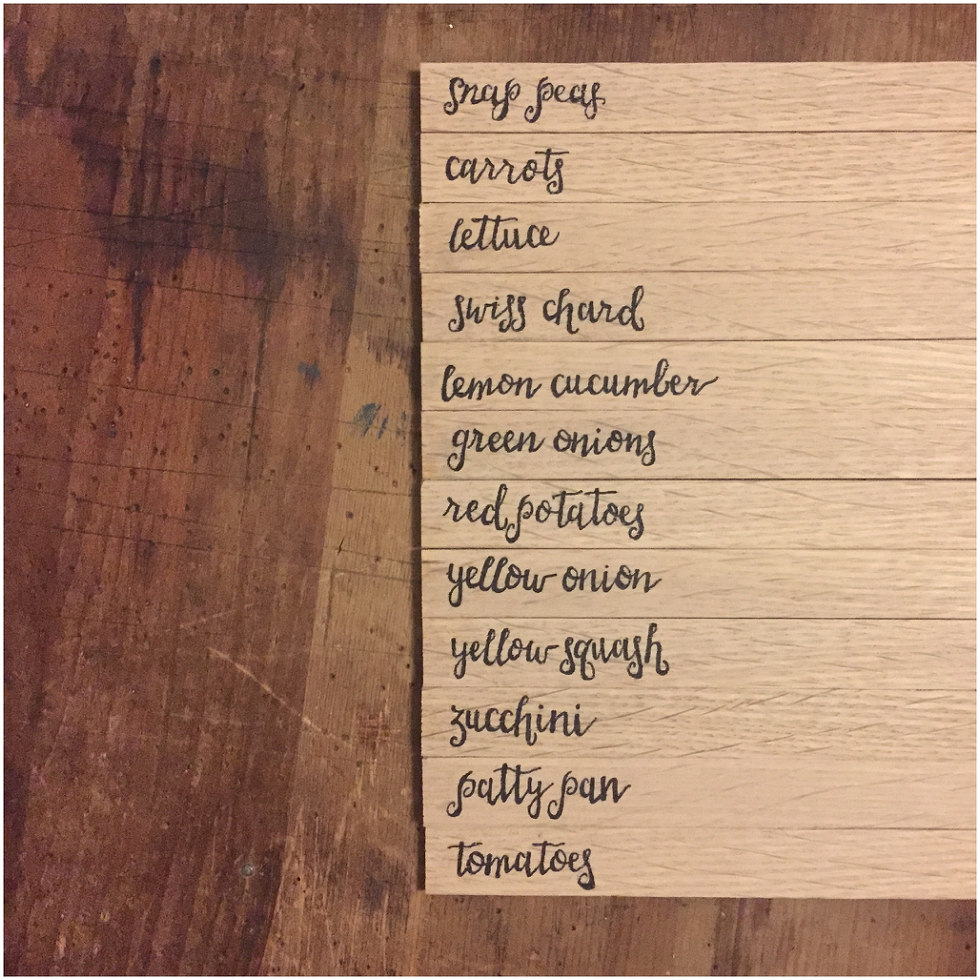 snap peas
carrots
lettuce
swiss chard
lemon cucumber
green onions
red potatoes
yellow onion
yellow squash
zucchini
patty pan
tomatoes